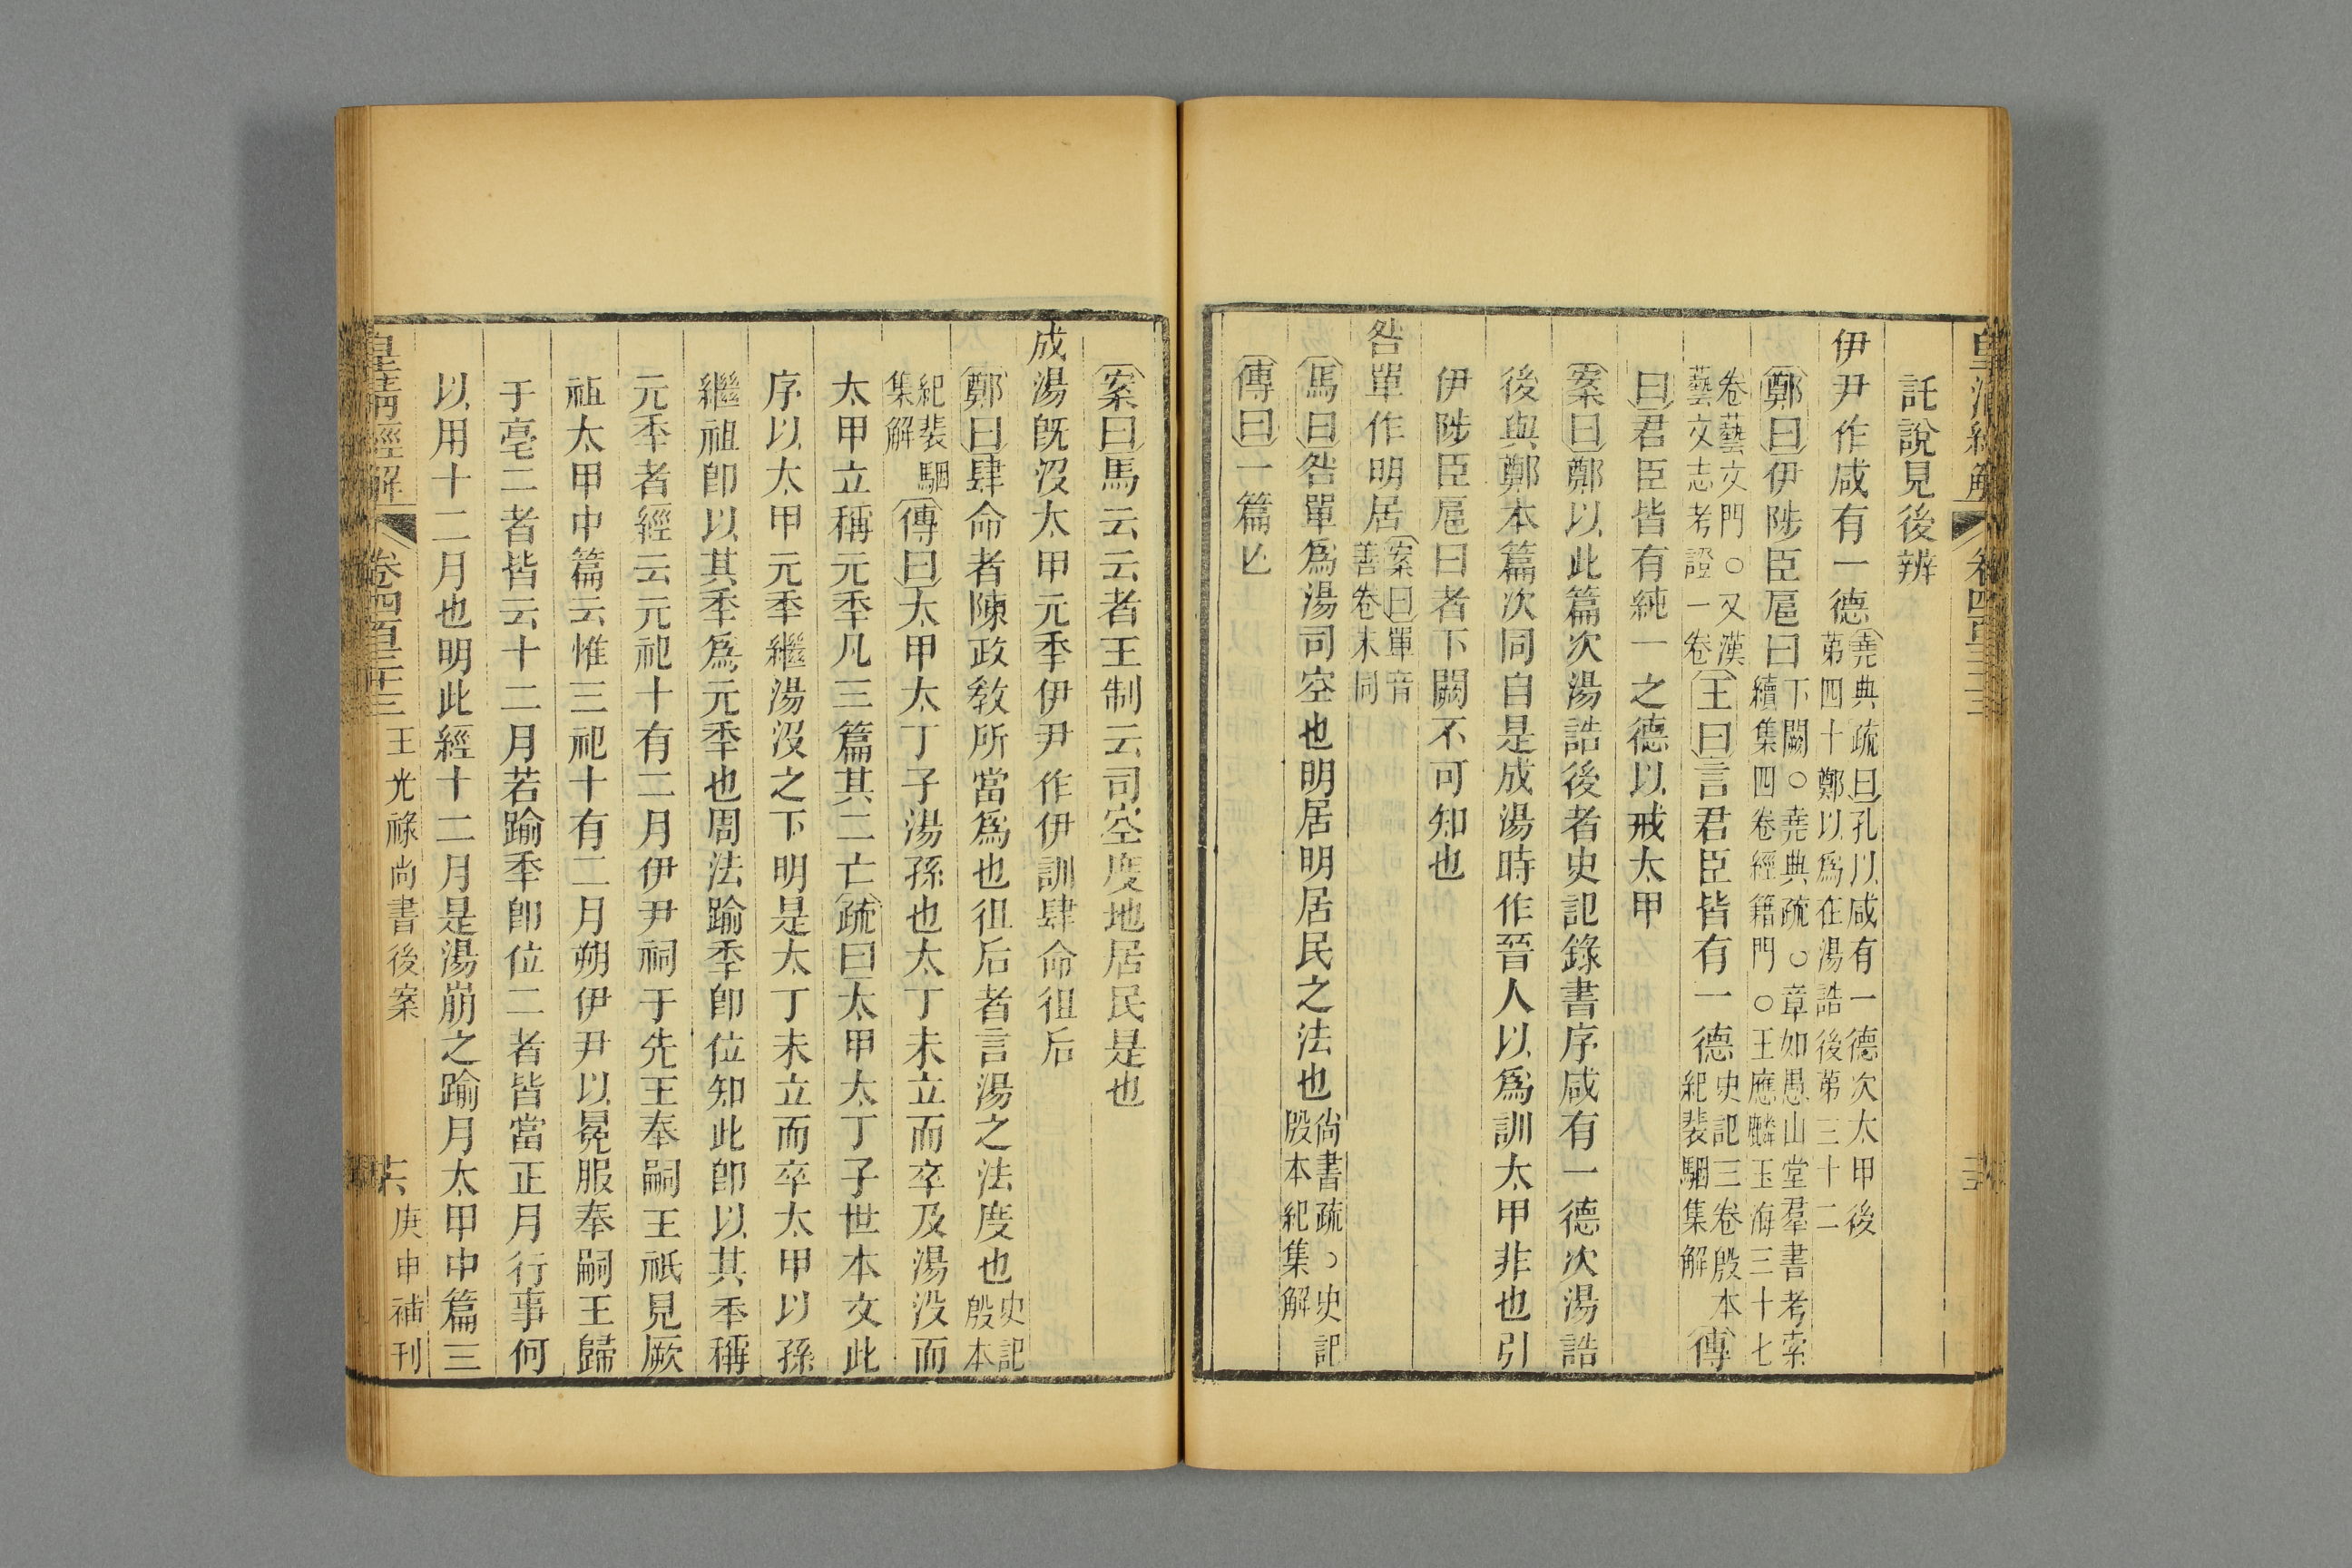 託說見後辨
伊尹作咸有一德堯典疏曰孔以咸有一德次太甲後第四十鄭以爲在湯誥後第三十二
鄭曰伊陟臣扈曰下闕○堯典疏○章如愚山堂羣書考索續集四卷經籍門○王應麟玉海三十七
卷藝文門○又漢藝文志考證一卷王曰言君臣皆有一德史記三卷殷本紀裴駰集解傳
曰君臣皆有純一之德以戒太甲
案曰鄭以此篇次湯誥後者史記錄書序咸有一德次湯誥
後與鄭本篇次同自是成湯時作晉人以爲訓太甲非也引
伊陟臣扈曰者下闕不可知也
咎單作明居案曰單音善卷末同
馬曰咎單爲湯司空也明居明居民之法也尚書疏○史記殷本紀集解
傳曰一篇亾
案曰馬云云者王制云司空度地居民是也
成湯旣沒太甲元秊伊尹作伊訓肆命徂后
鄭曰肆命者陳政敎所當爲也徂后者言湯之法度也史記殷本
紀裴駰集解傳曰太甲太丁子湯孫也太丁未立而卒及湯沒而
太甲立稱元秊凡三篇其二亡疏曰太甲太丁子世本文此
序以太甲元秊繼湯沒之下明是太丁未立而卒太甲以孫
繼祖卽以其秊爲元秊也周法踰季卽位知此卽以其秊稱
元秊者經云元祀十有二月伊尹祠于先王奉嗣王祇見厥
祖太甲中篇云惟三祀十有二月朔伊尹以冕服奉嗣王歸
于亳二者皆云十二月若踰秊卽位二者皆當正月行事何
以用十二月也明此經十二月是湯崩之踰月太甲中篇三
皇淸經解 卷四百三十三 王光祿尚書後案 庚申補刊